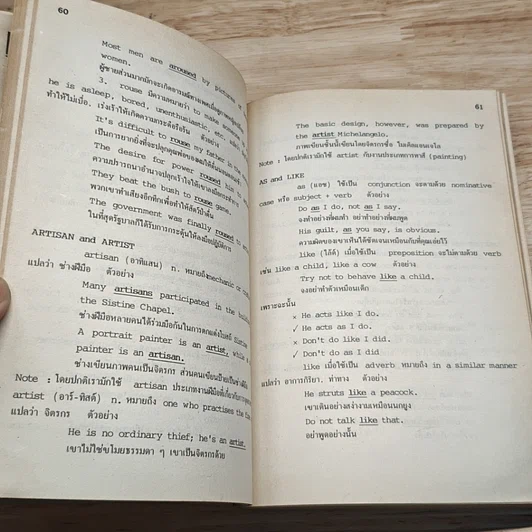 60
Most men are aroused by pictures of
women.
ผู้ชายส่วนมากมักจะเกิดอารมณ์
3. rouse มีความหมายว่า to make someone
he is asleep, bored, unenthusiastic, etc.
ทำให้ไม่เบื่อ, เร่งเร้าให้เกิดความกระตือรือร้น ตัวอย่าง
It's difficult to rouse my father in the
เป็นการยากยิ่งที่จะปลุกคุณพ่อของผมให้ตื่นนอน
The desire for power roused him
ความปรารถนาอำนาจปลุกเร้าใจให้เขา
They beat the bush to rouse game.
พวกเขาทำเสียงอึกทึกเพื่อทำให้สัตว์ป่าตื่น
The government was finally roused to
ในที่สุดรัฐบาลก็ได้รับการกระตุ้นให้ลงมือปฏิบัติการ
ARTISAN and ARTIST
artisan (อาทิแสน) n. หมายถึง mechanic or
แปลว่า ช่างฝีมือ ตัวอย่าง
Many artisans participated in the
the Sistine Chapel.
ช่างฝีมือหลายคนได้ร่วมมือกันในการตกแต่งโบสถ์ Sistine
A portrait painter is an artist, while a
painter is an artisan.
ช่างเขียนภาพคนเป็นจิตรกร ส่วนคนเขียนป้ายเป็นช่างฝีมือ
Note : โดยปกติเรามักใช้ artisan ประเภทงานฝีมือที่เกี่ยวกับ
artist (อาร์-ทิสต์) n. หมายถึง one who practises the
แปลว่า จิตรกร ตัวอย่าง
He is no ordinary thief; he's an artist.
เขาไม่ใช่ขโมยธรรมดา ๆ เขาเป็นจิตรกรด้วย
61
The basic design, however, was prepared by
the artist Michelangelo.
ภาพเขียนชิ้นนี้เขียนโดยจิตรกรชื่อ ไมเคิลแอนเจโล
Note : โดยปกติเรามักใช้ artist กับงานประเภทการทาสี (painting)
AS and LIKE
as (แอซ) ใช้เป็น conjunction จะตามด้วย nominative
case หรือ subject + verb ตัวอย่าง
Do as I do, not as I say.
จงทำอย่างที่ผมทำ อย่าทำอย่างที่ผมพูด
His guilt, as you say, is obvious.
ความผิดของเขาเห็นได้ชัดเจนเหมือนกับที่คุณเอ่ยไว้
like (ไล้ค์) เมื่อใช้เป็น preposition จะไม่ตามด้วย verb
เช่น like a child, like a cow ตัวอย่าง
Try not to behave like a child.
จงอย่าทำตัวเหมือนเด็ก
เพราะฉะนั้น
× He acts like I do.
✓ He acts as I do.
× Don't do like I did.
✓ Don't do as I did
like เมื่อใช้เป็น adverb หมายถึง in a similar manner
แปลว่า อาการกิริยา, ท่าทาง ตัวอย่าง
He struts like a peacock.
เขาเดินอย่างสง่างามเหมือนนกยูง
Do not talk like that.
อย่าพูดอย่างนั้น